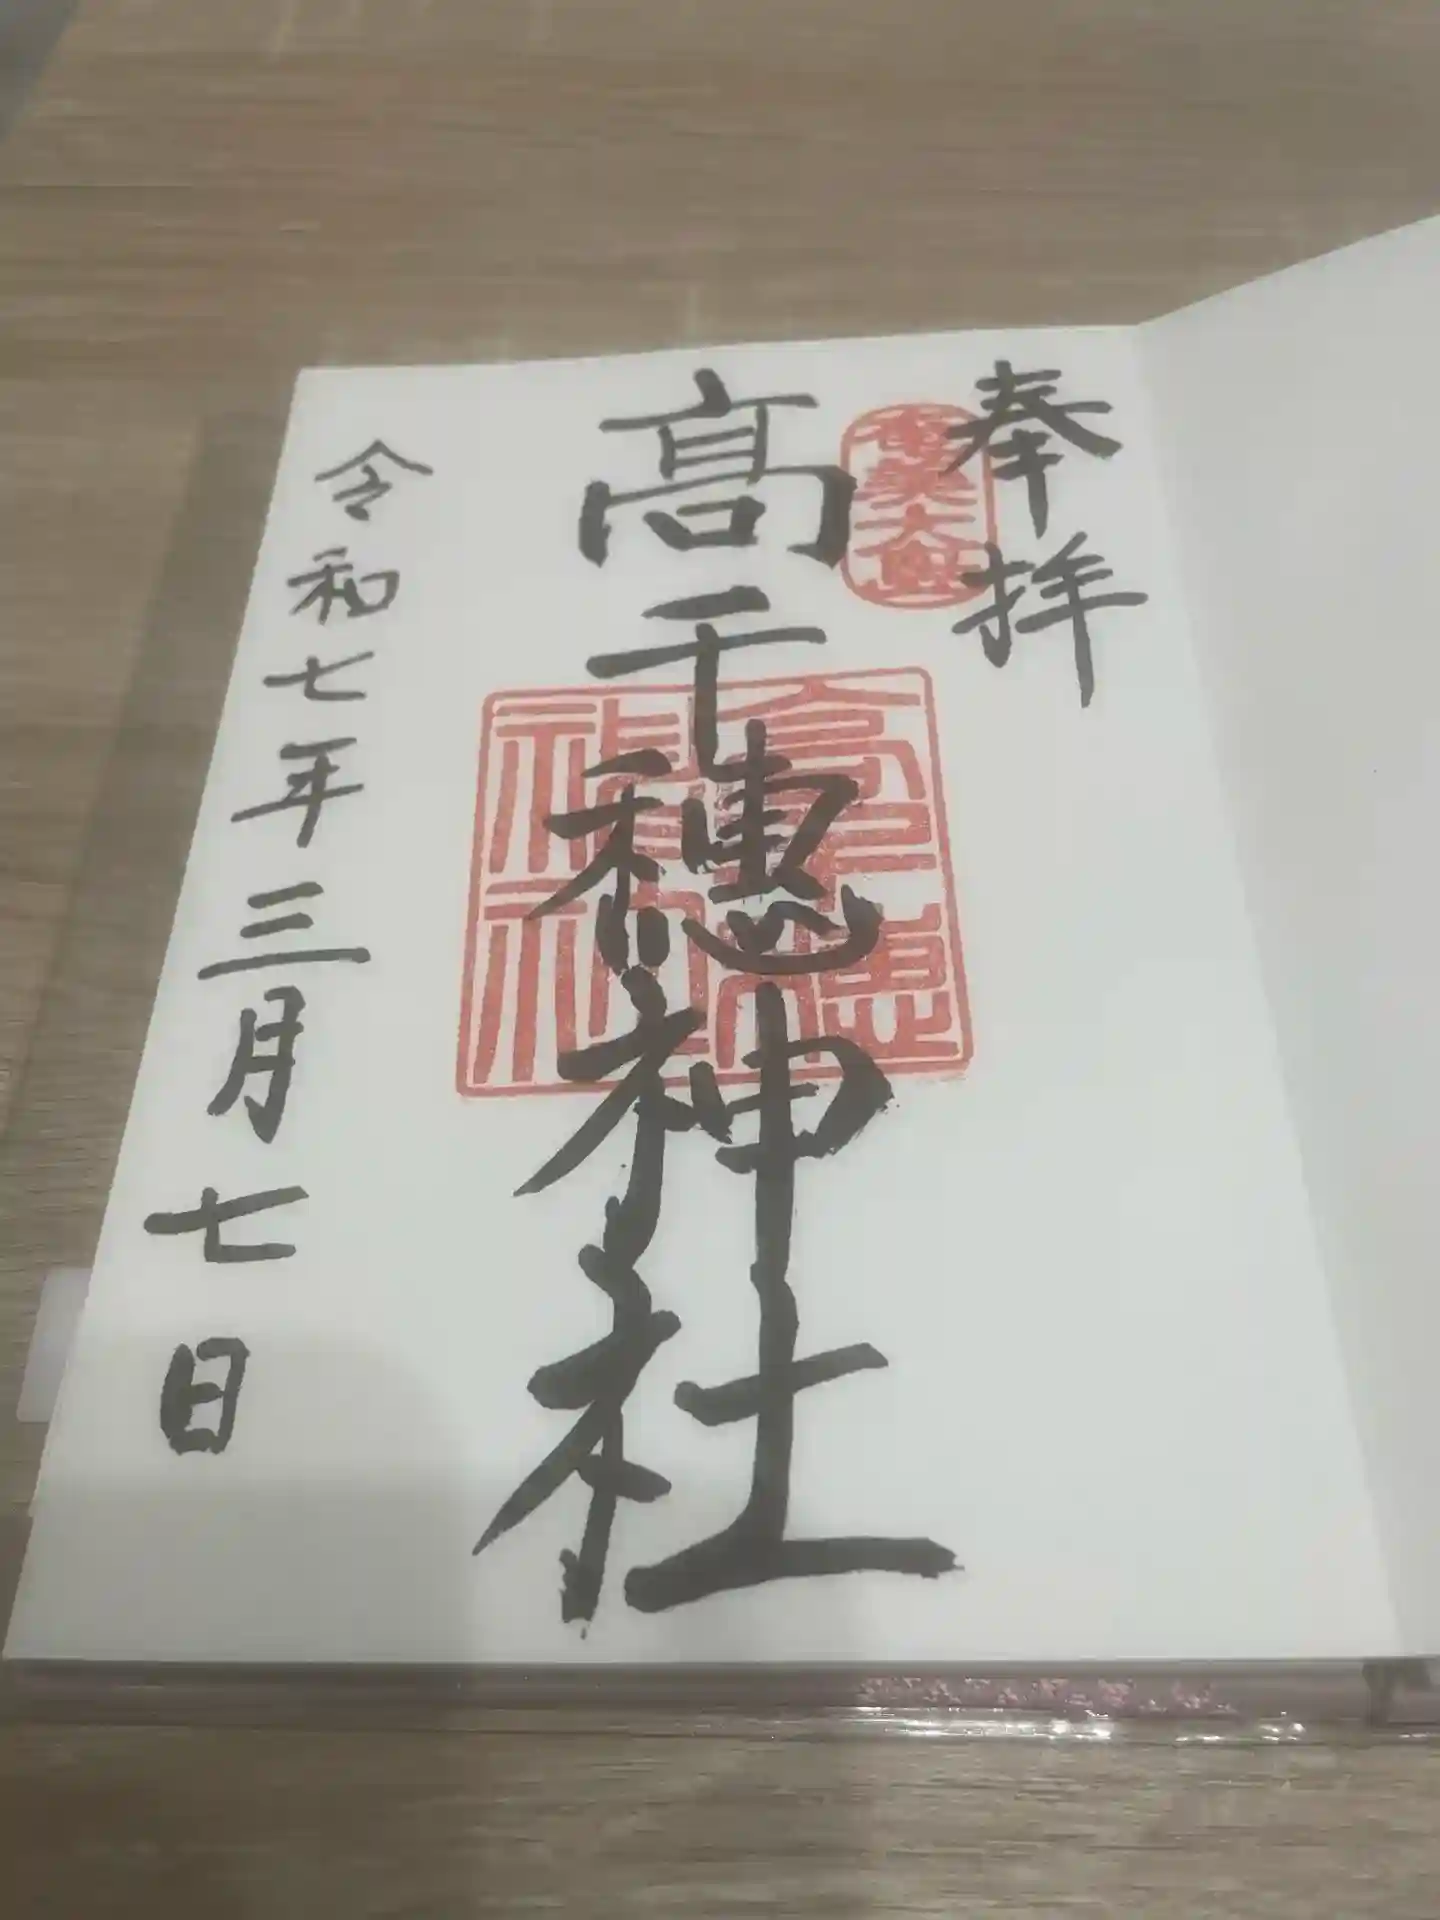 奉拝
髙千穂神社
高千穂神社
令和七年三月七日